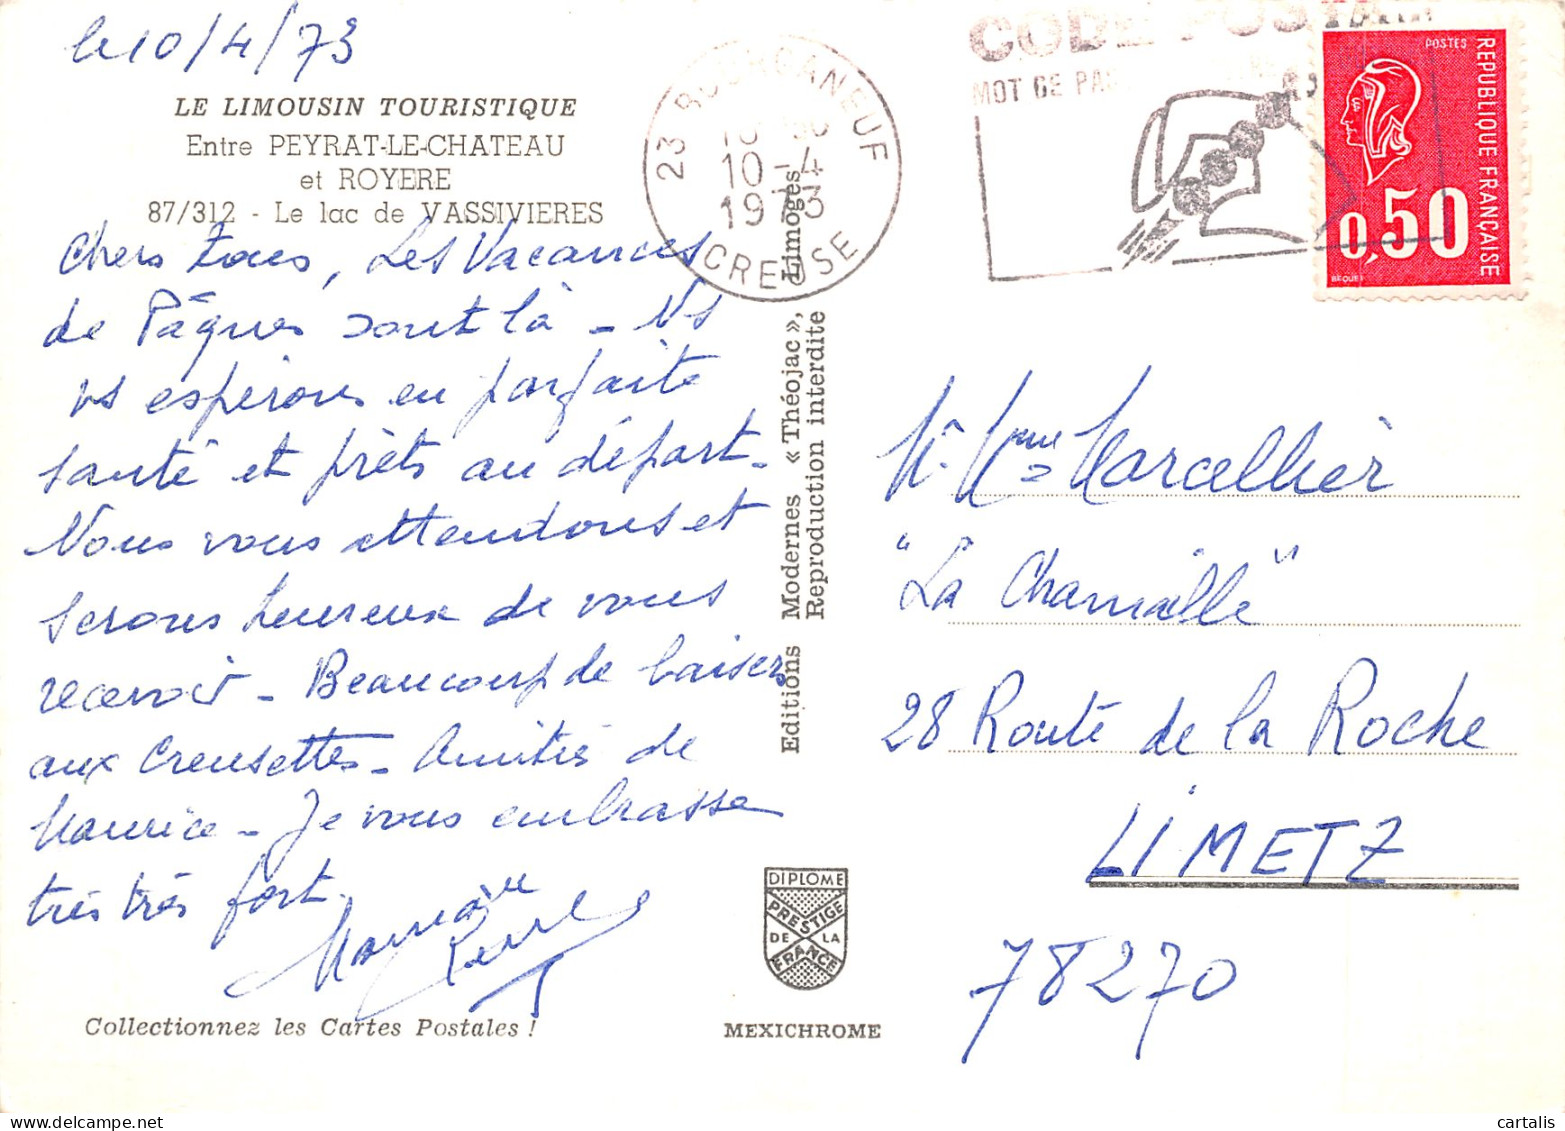 le 10/4/73
LE LIMOUSIN TOURISTIQUE
Entre PEYRAT-LE-CHATEAU
et ROYERE
87/312 - Le lac de VASSIVIERES
Chers tous, Les Vacances
de Pâques sont là - Ns
vs espérons en parfaite
santé et prêts au départ -
Nous vous attendons et
serons heureux de vous
recevoir - Beaucoup de baisers
aux Creusettes - Amitiés de
Maurice - Je vous embrasse
très très fort.
Collectionnez les Cartes Postales !
Editions Modernes « Théojac », Limoges
Reproduction interdite
DIPLOME
PRESTIGE
DE LA
FRANCE
MEXICHROME
23 BOURGANEUF
10-4
1973
CREUSE
CODE POSTAL
MOT DE
POSTES
REPUBLIQUE FRANÇAISE
0,50
BEQUET
Mr Mme Marcellier
"La Charmaille"
28 Route de la Roche
LIMETZ
78270
cartalis